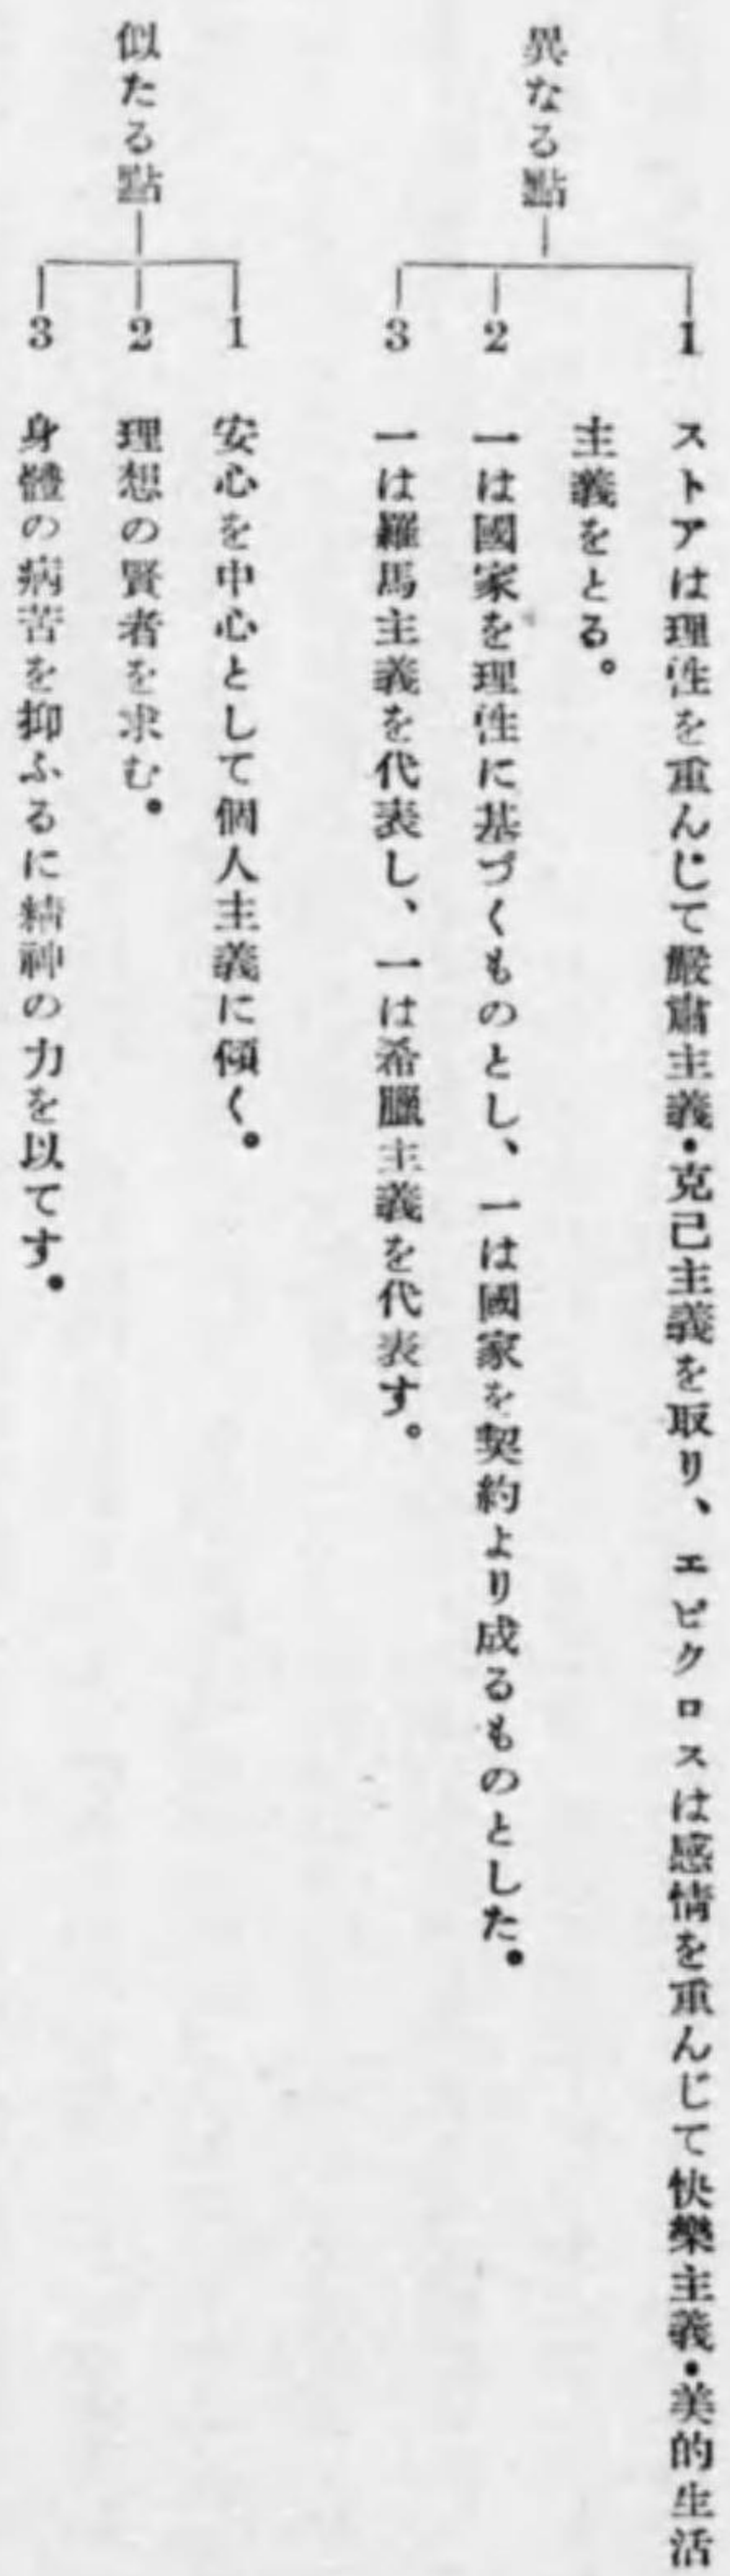 異なる點
1 ストアは理性を重んじて嚴肅主義・克己主義を取り、エピクロスは感情を重んじて快樂主義・美的生活
主義をとる。
2 一は國家を理性に基づくものとし、一は國家を契約より成るものとした。
3 一は羅馬主義を代表し、一は希臘主義を代表す。
似たる點
1 安心を中心として個人主義に傾く。
2 理想の賢者を求む。
3 身體の病苦を抑ふるに精神の力を以てす。